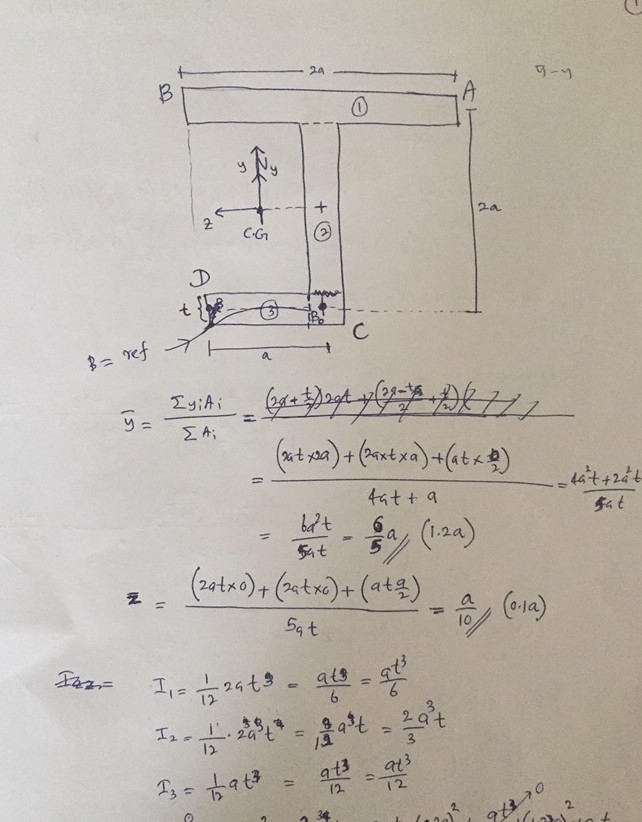 1
2a
y-y
B
A
①
y
y
2a
z
+
C.G
②
D
t {
③
B₀
C
B = ref
a
ȳ = ΣyᵢAᵢ / ΣAᵢ =
= (2at×2a) + (2a×t×a) + (at×0/2) / 4at + a = 4a²t + 2a²t / 5at
= 6a²t / 5at = 6/5 a // (1.2a)
z = (2at×0) + (2at×0) + (at a/2) / 5at = a/10 // (0.1a)
I₁ = 1/12 2at³ = at³/6 = at³/6
I₂ = 1/12 · 2³a³t = 8/12 a³t = 2/3 a³t
I₃ = 1/12 at³ = at³/12 = at³/12